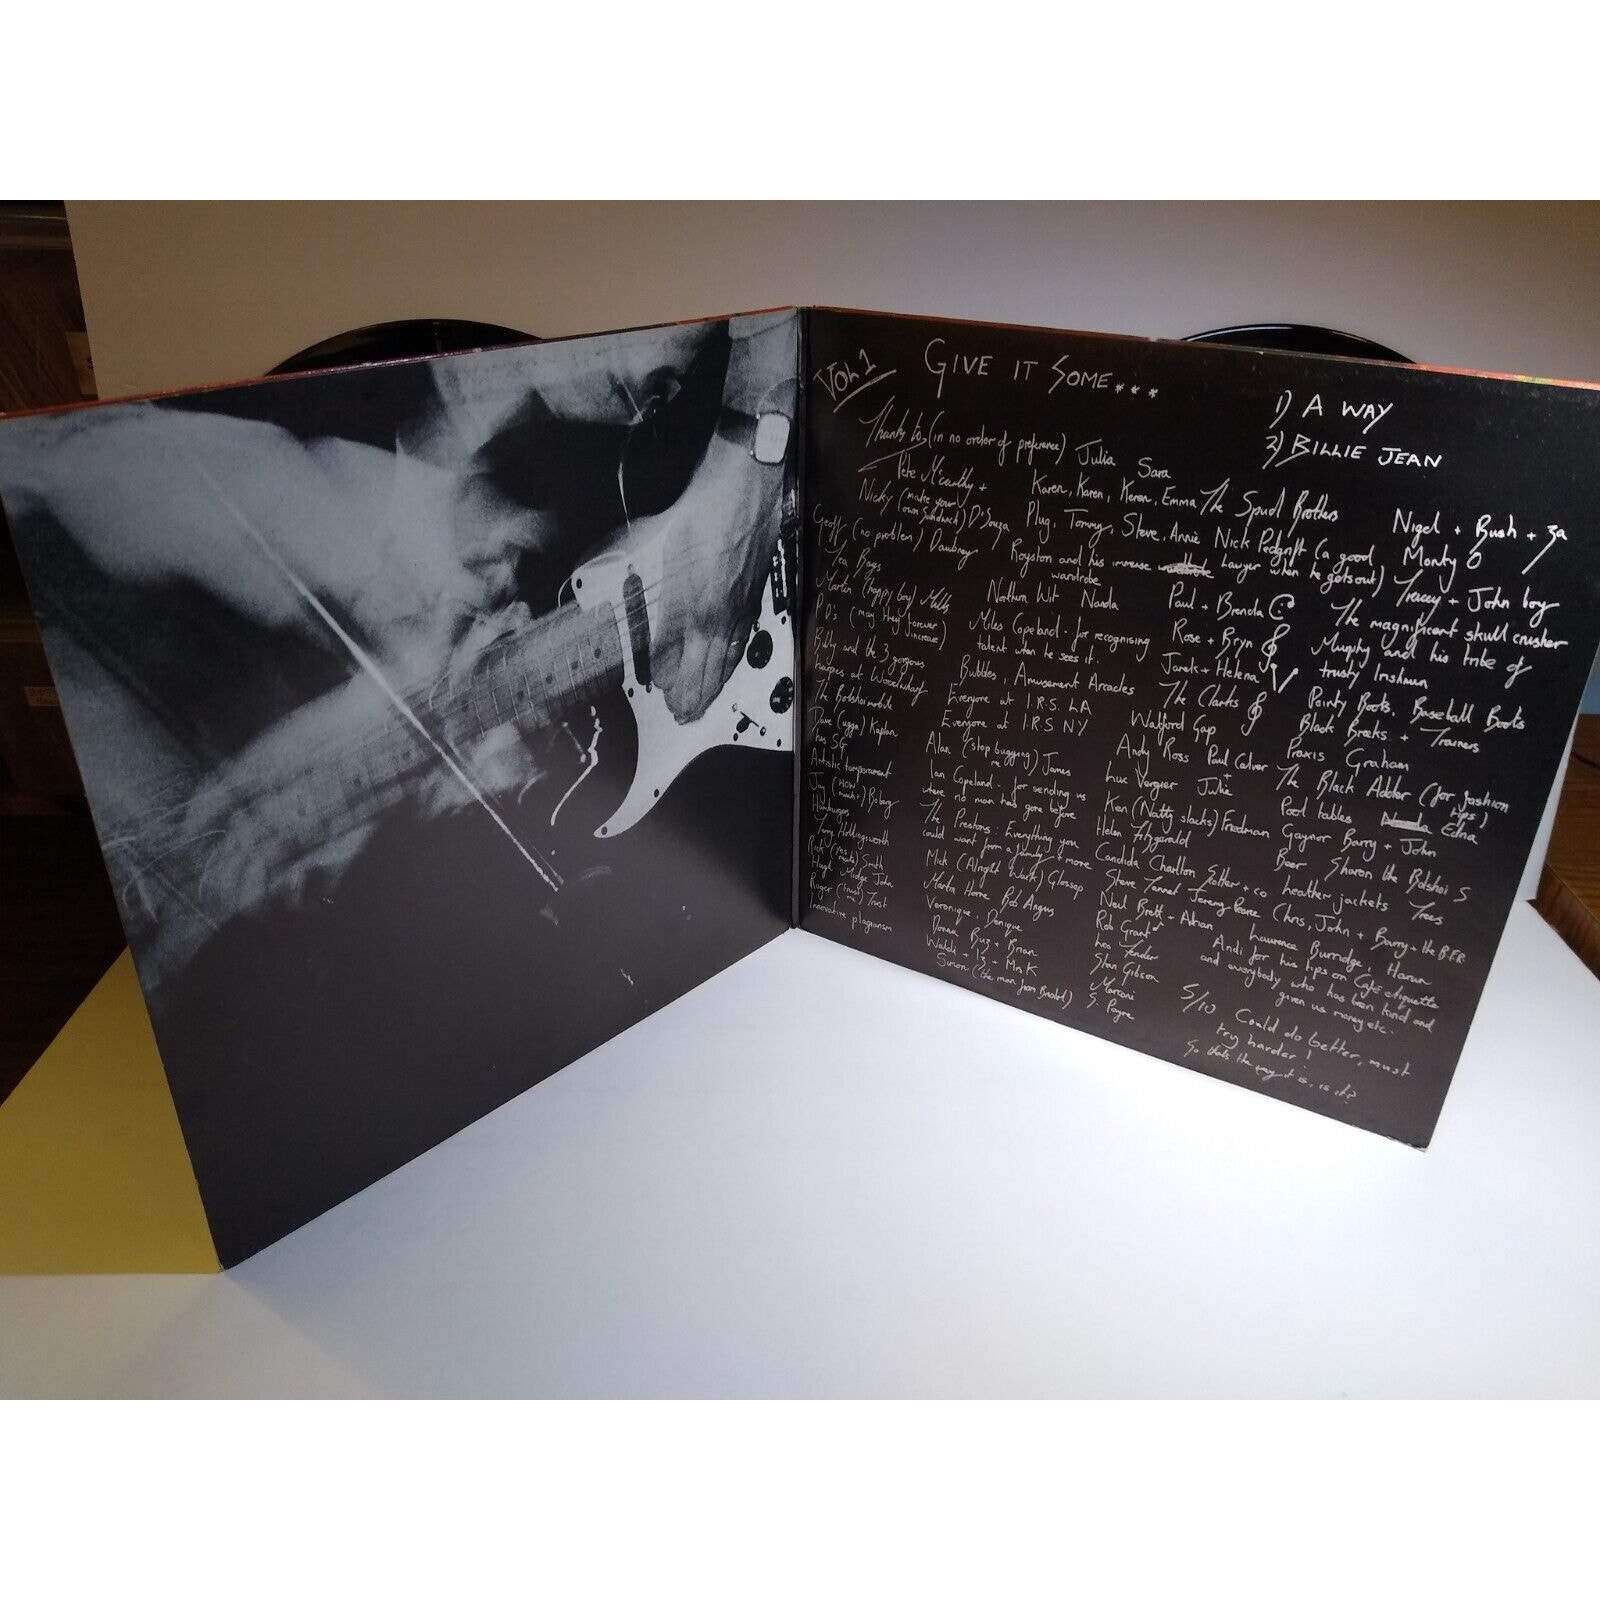 VOL 1
GIVE IT SOME...
1) A WAY
2) BILLIE JEAN
Thanks to (in no order of preference) Julia Sara
Pete McCarthy + Karen, Karen, Keren, Emma The Spud Brothers
Nigel + Bush + 3a
Nicky (make your own Sandwich) D'Souza Plug, Tommy, Steve, Annie Nick Pedgrift (a good Lawyer when he gets out) Monty O
Geoff (no problem) Daubney Royston and his immense wardrobe
Tracey + John boy
Tea Bags
Northern Wit Nanda Paul + Brenda The magnificent skull crusher
Martin (happy boy) Mills
P.D's (may they forever increase)
Miles Copeland - for recognising talent when he sees it.
Rose + Bryn Murphy and his tribe of trusty Irishmen
Billy and the 3 gorgeous
Jarek + Helena
Bubbles, Amusement Arcades The Clarks Pointy Boots, Baseball Boots
The Bolshoimobile Everyone at I.R.S. LA Watford Gap Black Breeks + Trainers
Dave (ugga) Kaplan Everyone at I.R.S NY Andy Ross Paul Calver Praxis Graham
SG Alan (stop bugging me) James Luc Vergier + Julie The Black Adder (for fashion tips)
Artistic temperament Ian Copeland - for sending us where no man has gone before
Ken (Natty slacks) Friedman Pool tables Edna
Jay (HOW much?) Boberg
Hamburgers The Prestons: Everything you could want from a family + more
Helen Fitzgerald Gaynor Barry + John
Terry Hollingsworth Candida Charlton Beer Sharon the Bolshoi S
Rick Smith Mick (Alright Wack) Glossop Steve Tannet Jeremy Pearce leather jackets Trees
Hugh Midge John Martin Horne Bob Angus Neil Brett + Adrian Chris, John + Barry + the B.E.R.
Roger (trust me) Trust Veronique, Denique Rob Grant Lawrence Burridge, Harun
Innovative plagiarism Donna Buz + Brian Leo Fender Andi for his tips on Café etiquette
Walch + 13 + Mrs K Stan Gibson and everybody who has been kind and given us money etc.
Simon (the man from Bristol) Marconi
S. Payne
5/10 Could do better, must try harder!
So that's the way it is, is it?